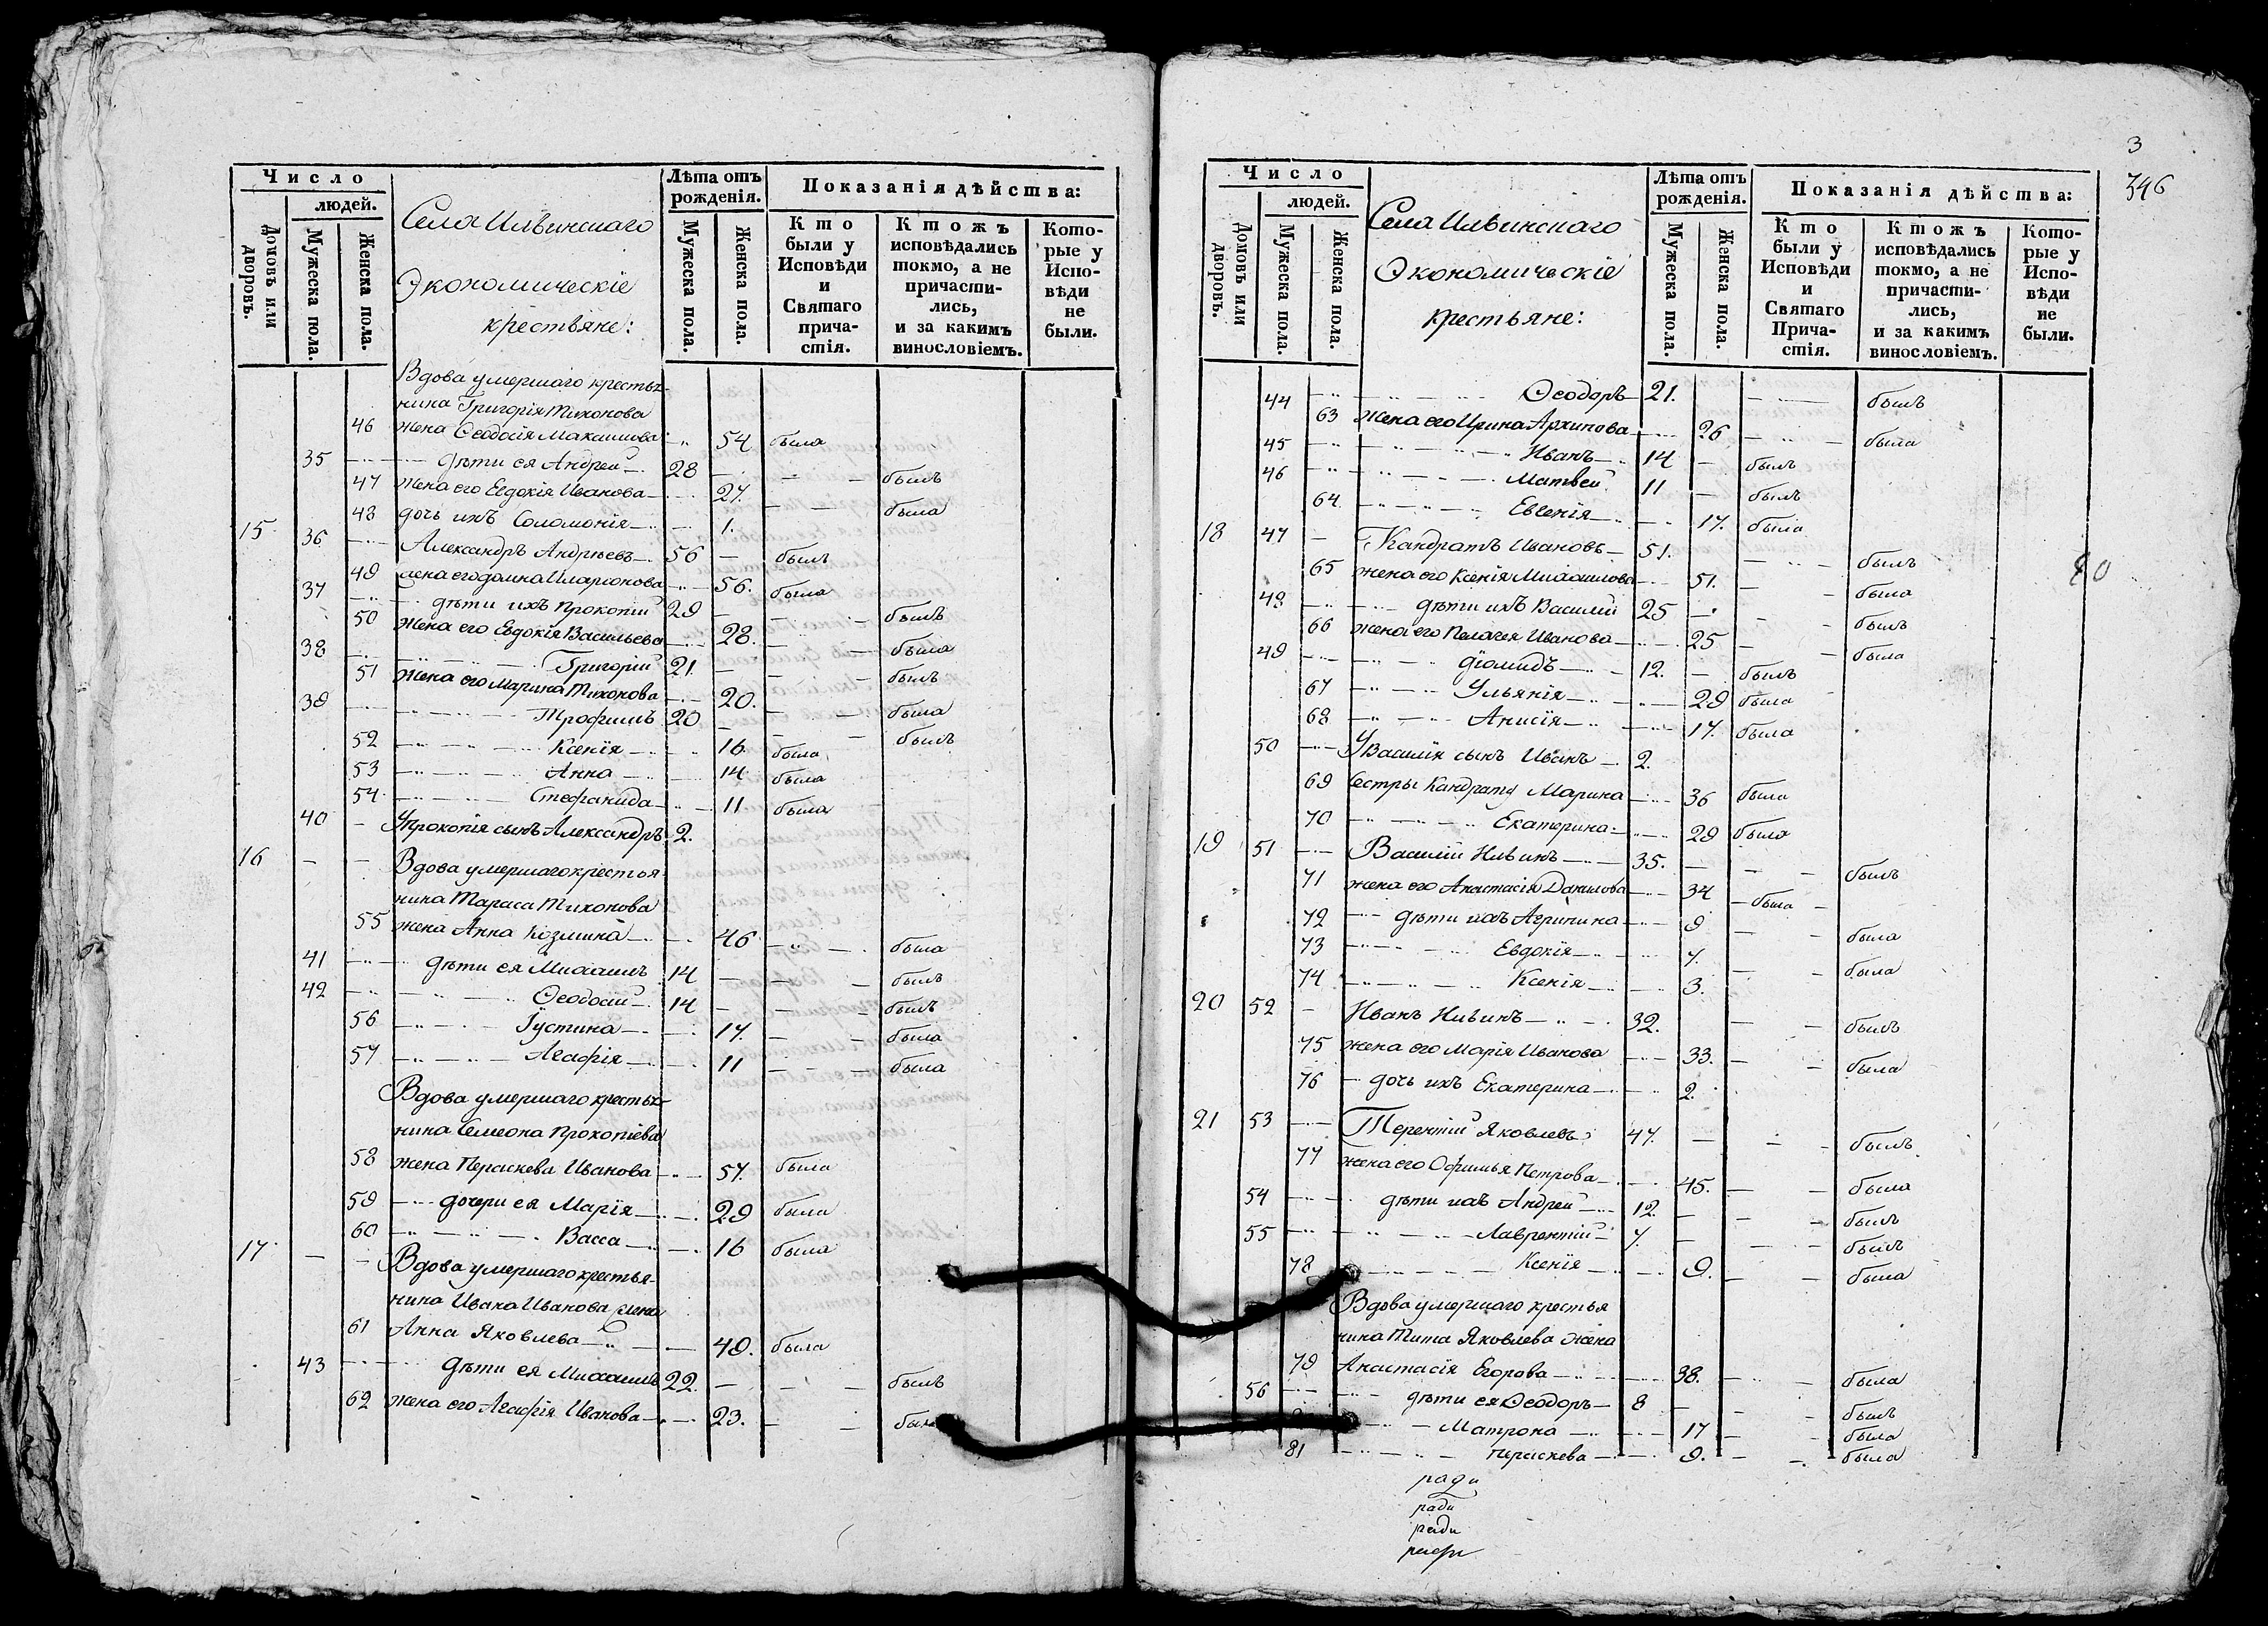 Число
людей.
Домовъ или дворовъ.
Мужеска пола.
Женска пола.
Села Ильинскаго
Экономическіе
крестьяне:
Лѣта отъ рожденія.
Мужеска пола.
Женска пола.
Показанія дѣйства:
Кто были у Исповѣди и Святаго причастія.
Ктожъ исповѣдались токмо, а не причастились, и за какимъ винословіемъ.
Которые у Исповѣди не были.
Вдова умершаго крестья-
нина Григорія Тихонова
46 жена Ѳеодосія Максимова 54 была
35 дѣти ея Андрей 28 былъ
47 жена его Евдокія Иванова 27. была
48 дочь ихъ Соломонія 1.
15 36 Александръ Андреевъ 56 былъ
49 жена его Домна Иларионова 56. была
37 дѣти ихъ Прокопій 29 былъ
50 жена его Евдокія Васильева 28. была
38 Григорій 21. былъ
51 жена его Марина Тихонова 20. была
39 Трофимъ 20 былъ
52 Ксенія 16. была
53 Анна 14 была
54 Стефанида 11 была
40 У Прокопія сынъ Александръ 2.
16 Вдова умершаго крестья-
нина Тараса Тихонова
55 жена Анна Козмина 46 была
41 дѣти ея Михаилъ 14 былъ
42 Ѳеодосій 14 былъ
56 Іустина 17. была
57 Агафія 11 была
Вдова умершаго крестья-
нина Семеона Прокопіева
58 жена Параскева Иванова 57. была
59 дочери ея Марія 29 была
60 Васса 16 была
17 Вдова умершаго крестья-
нина Ивана Иванова жена
61 Анна Яковлева 49. была
43 дѣти ея Михаилъ 22. былъ
62 жена его Агафія Иванова 23. была
3
346
Число
людей.
Домовъ или дворовъ.
Мужеска пола.
Женска пола.
Села Ильинскаго
Экономическіе
крестьяне:
Лѣта отъ рожденія.
Мужеска пола.
Женска пола.
Показанія дѣйства:
Кто были у Исповѣди и Святаго Причастія.
Ктожъ исповѣдались токмо, а не причастились, и за какимъ винословіемъ.
Которые у Исповѣди не были.
44 Ѳеодоръ 21. былъ
63 жена его Ирина Архипова 26 была
45 Иванъ 14 былъ
46 Матвей 11 былъ
64 Евгенія 17. была
18 47 Кандратъ Ивановъ 51. былъ
65 жена его Ксенія Михаилова 51. была
48 дѣти ихъ Василій 25 былъ
66 жена его Пелагея Иванова 25 была
49 Діомидъ 12. былъ
67 Ульянія 29 была
68 Анисія 17. была
50 У Василія сынъ Иванъ 2.
69 Сестры Кандрату Марина 36 была
70 Екатерина 29 была
19 51 Василій Ильинъ 35. былъ
71 жена его Анастасія Данилова 34 была
72 дѣти ихъ Агрипина 9 была
73 Евдокія 7. была
74 Ксенія 3.
20 52 Иванъ Ильинъ 32. былъ
75 жена его Марія Иванова 33. была
76 дочь ихъ Екатерина 2.
21 53 Терентій Яковлевъ 47. былъ
77 жена его Офимья Петрова 45. была
54 дѣти ихъ Андрей 12. былъ
55 Лаврентій 7. былъ
78 Ксенія 9. была
Вдова умершаго крестья
нина Тита Яковлева жена
79 Анастасія Егорова 38. была
56 дѣти ея Ѳеодоръ 8 былъ
Матрона 17 была
81 Параскева 9. была
ради
ради
ради